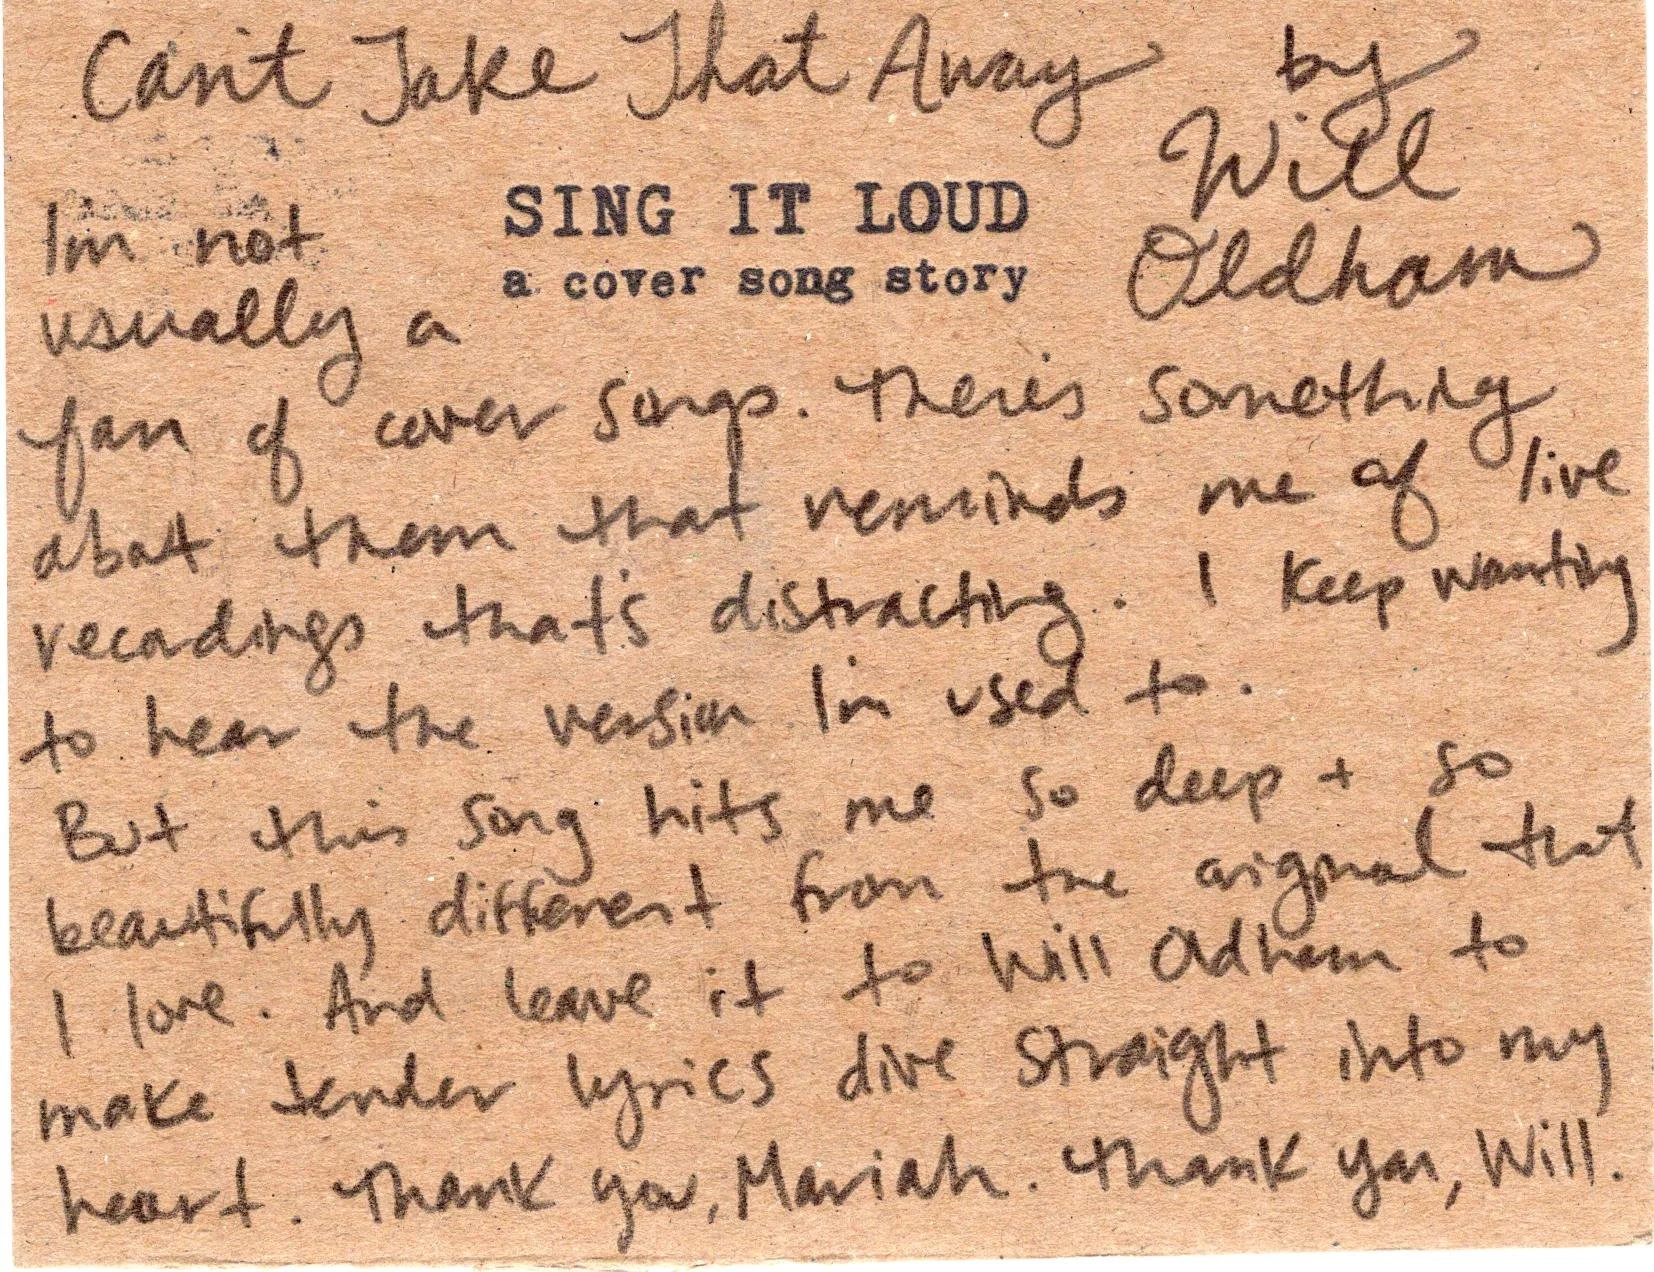 Can't Take That Away by
Will
Oldham
SING IT LOUD
a cover song story
I'm not
usually a
fan of cover songs. There's something
about them that reminds me of live
recordings that's distracting. I keep wanting
to hear the version I'm used to.
But this song hits me so deep + so
beautifully different from the original that
I love. And leave it to Will Oldham to
make tender lyrics dive straight into my
heart. Thank you, Mariah. Thank you, Will.